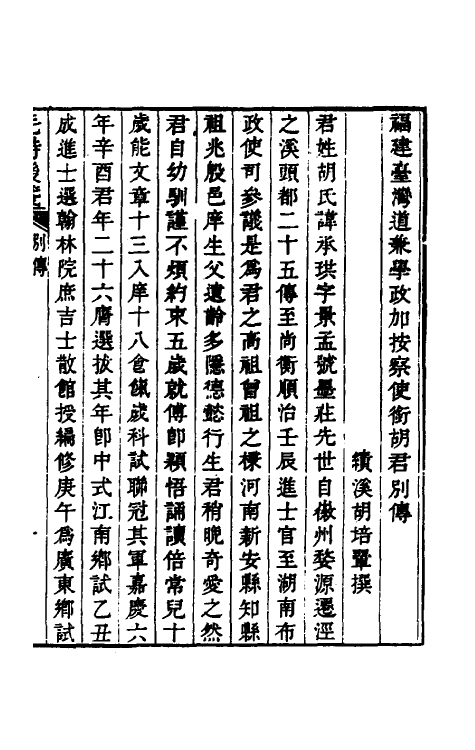 福建臺灣道兼學政加按察使銜胡君別傳
績溪胡培翬撰
君姓胡氏諱承珙字景孟號墨莊先世自徽州婺源遷涇
之溪頭都二十五傳至尚衡順治壬辰進士官至湖南布
政使司參議是爲君之高祖曾祖之棟河南新安縣知縣
祖兆殷邑庠生父遺齡多隱德懿行生君稍晚奇愛之然
君自幼馴謹不煩約束五歲就傅卽穎悟誦讀倍常兒十
歲能文章十三入庠十八食餼歲科試聯冠其軍嘉慶六
年辛酉君年二十六膺選拔其年卽中式江南鄉試乙丑
成進士選翰林院庶吉士散館授編修庚午爲廣東鄉試
毛詩後箋 別傳